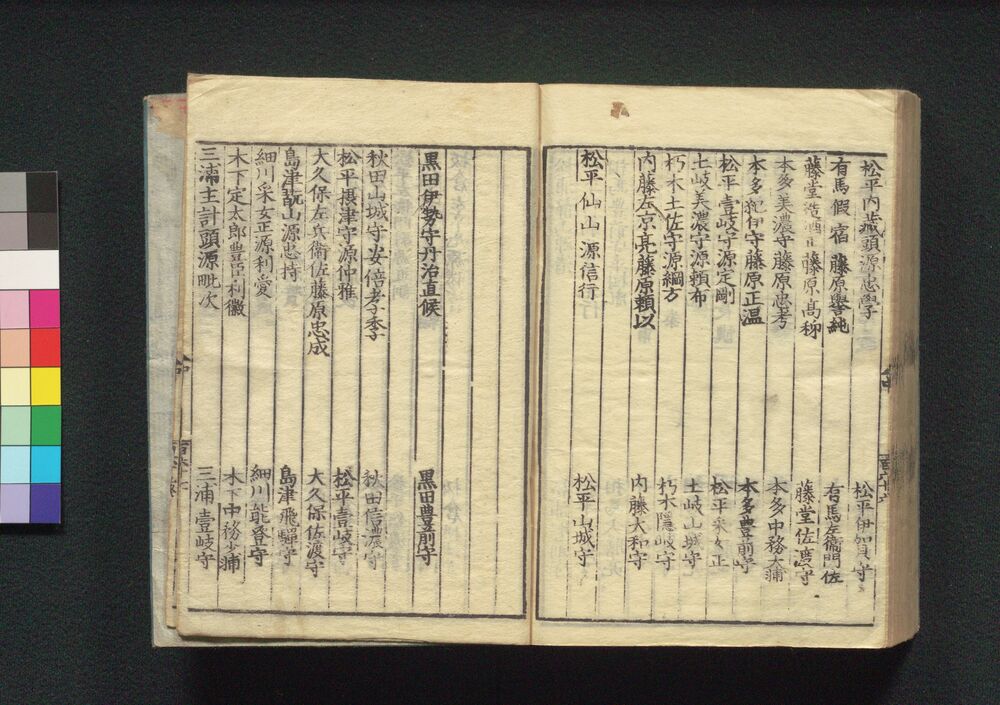 松平内蔵頭源忠學 松平伊賀守
有馬假宿藤原譽純 有馬左衞門佐
藤堂造酒正藤原高秭 藤堂佐渡守
本多美濃守藤原忠考 本多中務大輔
本多紀伊守藤原正温 本多豊前守
松平壹岐守源定剛 松平采女正
土岐美濃守源頼布 土岐山城守
朽木土佐守源綱方 朽木隠岐守
内藤左京亮藤原頼以 内藤大和守
松平仙山源信行 松平山城守
黒田伊勢守丹治直候 黒田豊前守
秋田山城守安倍孝季 秋田信濃守
松平摂津守源仲雅 松平壹岐守
大久保左兵衞佐藤原忠成 大久保佐渡守
島津翫山源忠持 島津飛騨守
細川采女正源利愛 細川能登守
木下定太郎豊臣利徽 木下中務少輔
三浦主計頭源毗次 三浦壹岐守